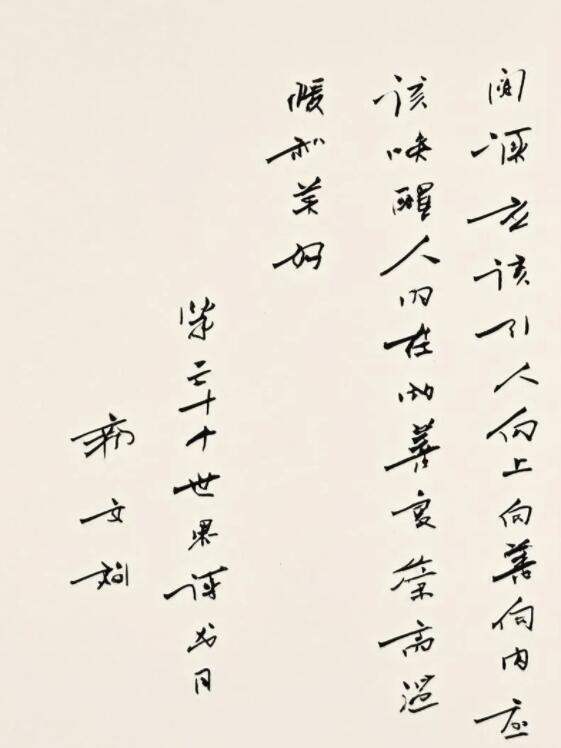 阅读应该引人向上向善向内应
该唤醒人内在的善良崇高温
暖和美好
十世界读书日
郭文斌